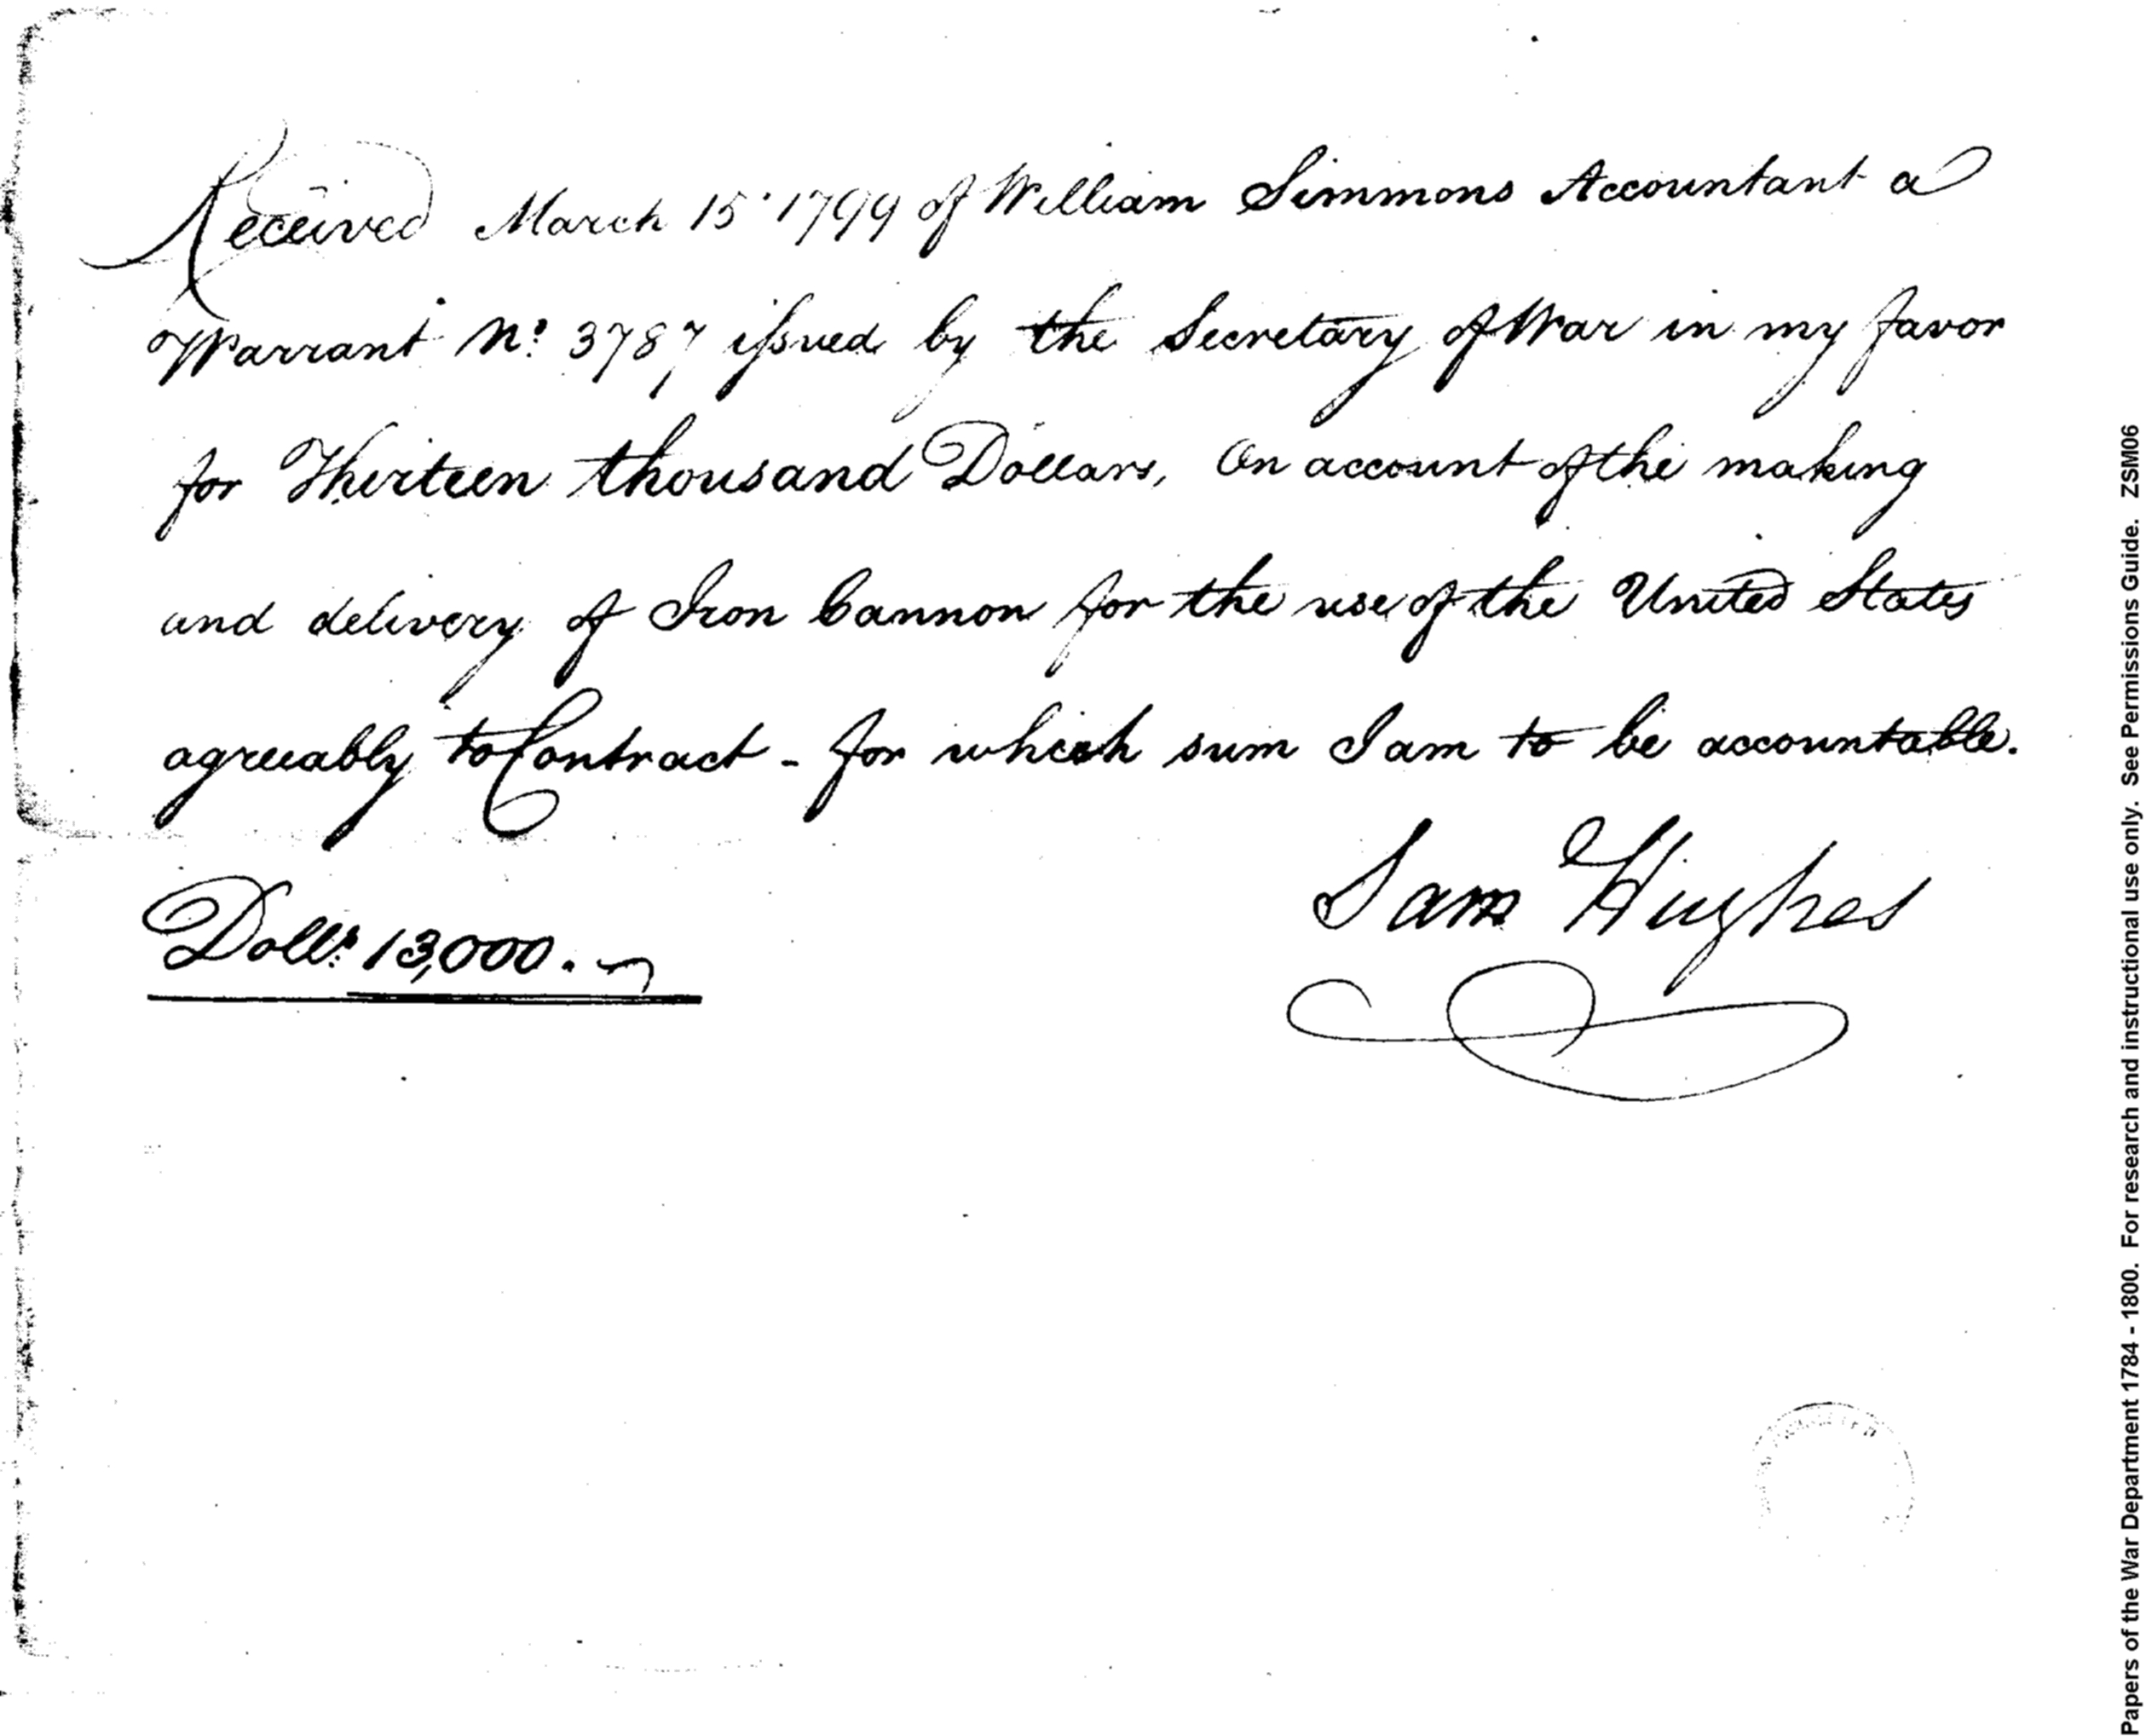 Received March 15. 1799 of William Simmons Accountant a
Warrant No. 3787 issued by the Secretary of War in my favor
for Thirteen thousand Dollars, On account of the making
and delivery of Iron Cannon for the use of the United States
agreeably to Contract - for which sum I am to be accountable.
Sam Hughes
Dolls. 13,000.
Papers of the War Department 1784 - 1800. For research and instructional use only. See Permissions Guide. ZSM06